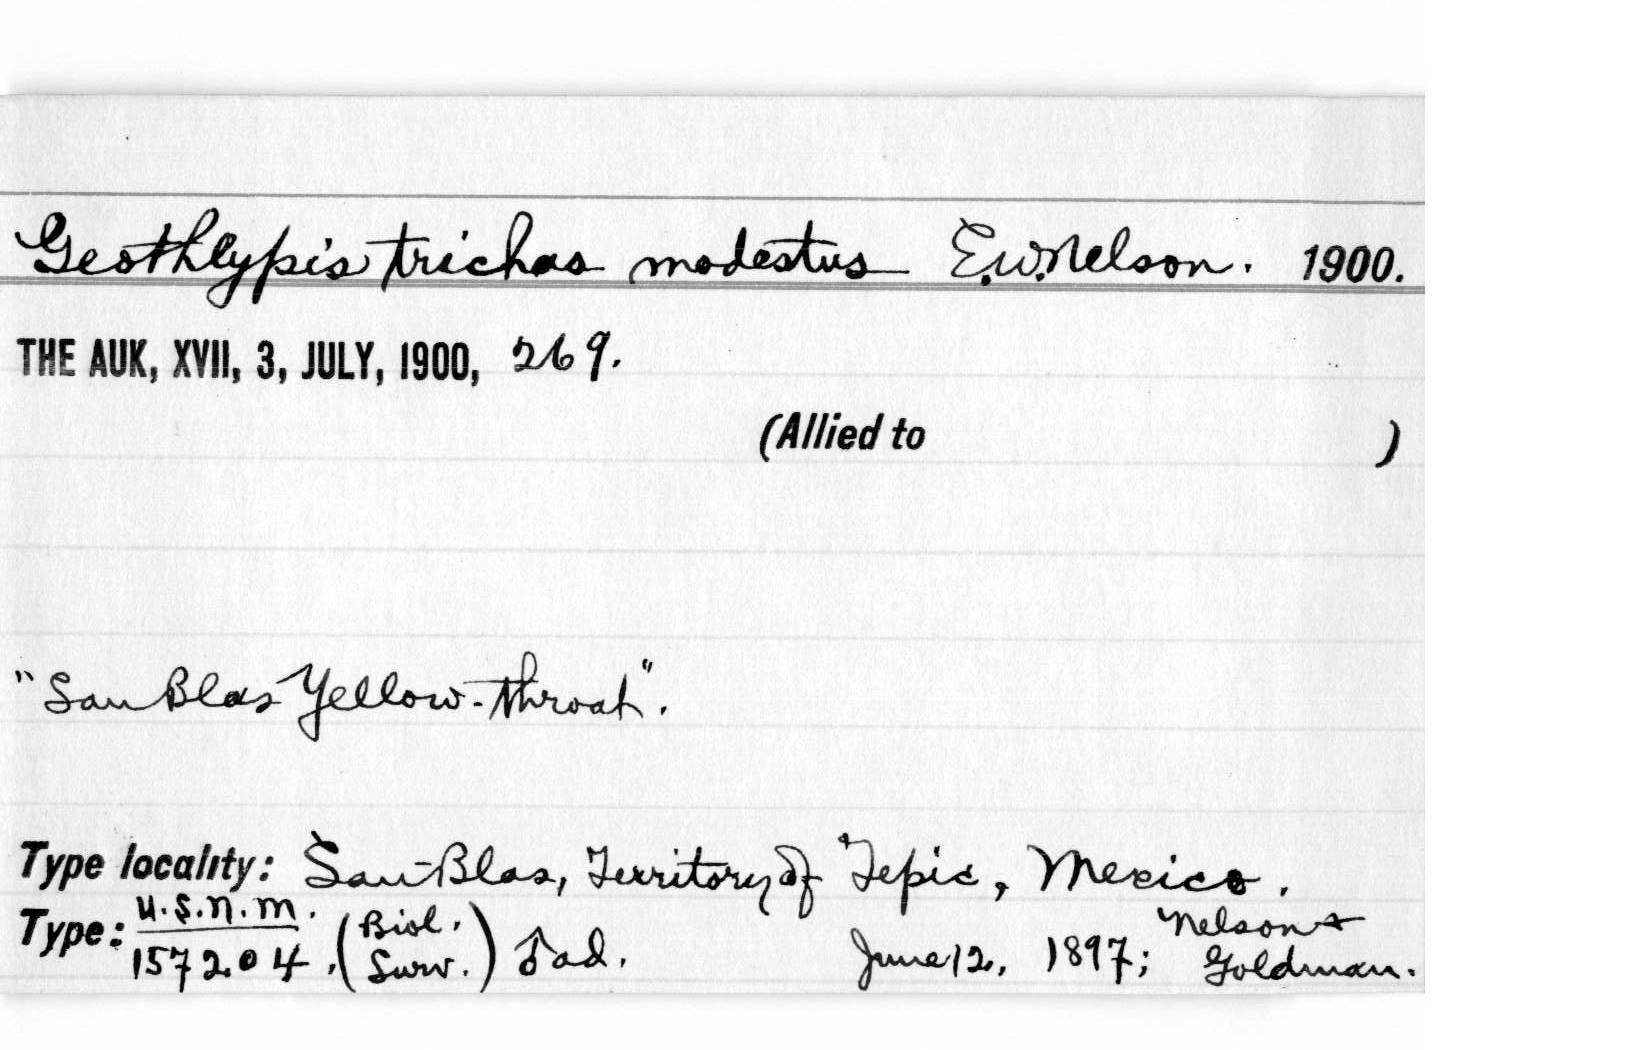 Geothlypis trichas modestus E.W.Nelson. 1900.
THE AUK, XVII, 3, JULY, 1900, 269.
(Allied to )
"San Blas Yellow-throat".
Type locality: San Blas, Territory of Tepic, Mexico.
Type: U.S.N.M. 157204. (Biol. Surv.) ♂ ad. June 12, 1897; Nelson + Goldman.